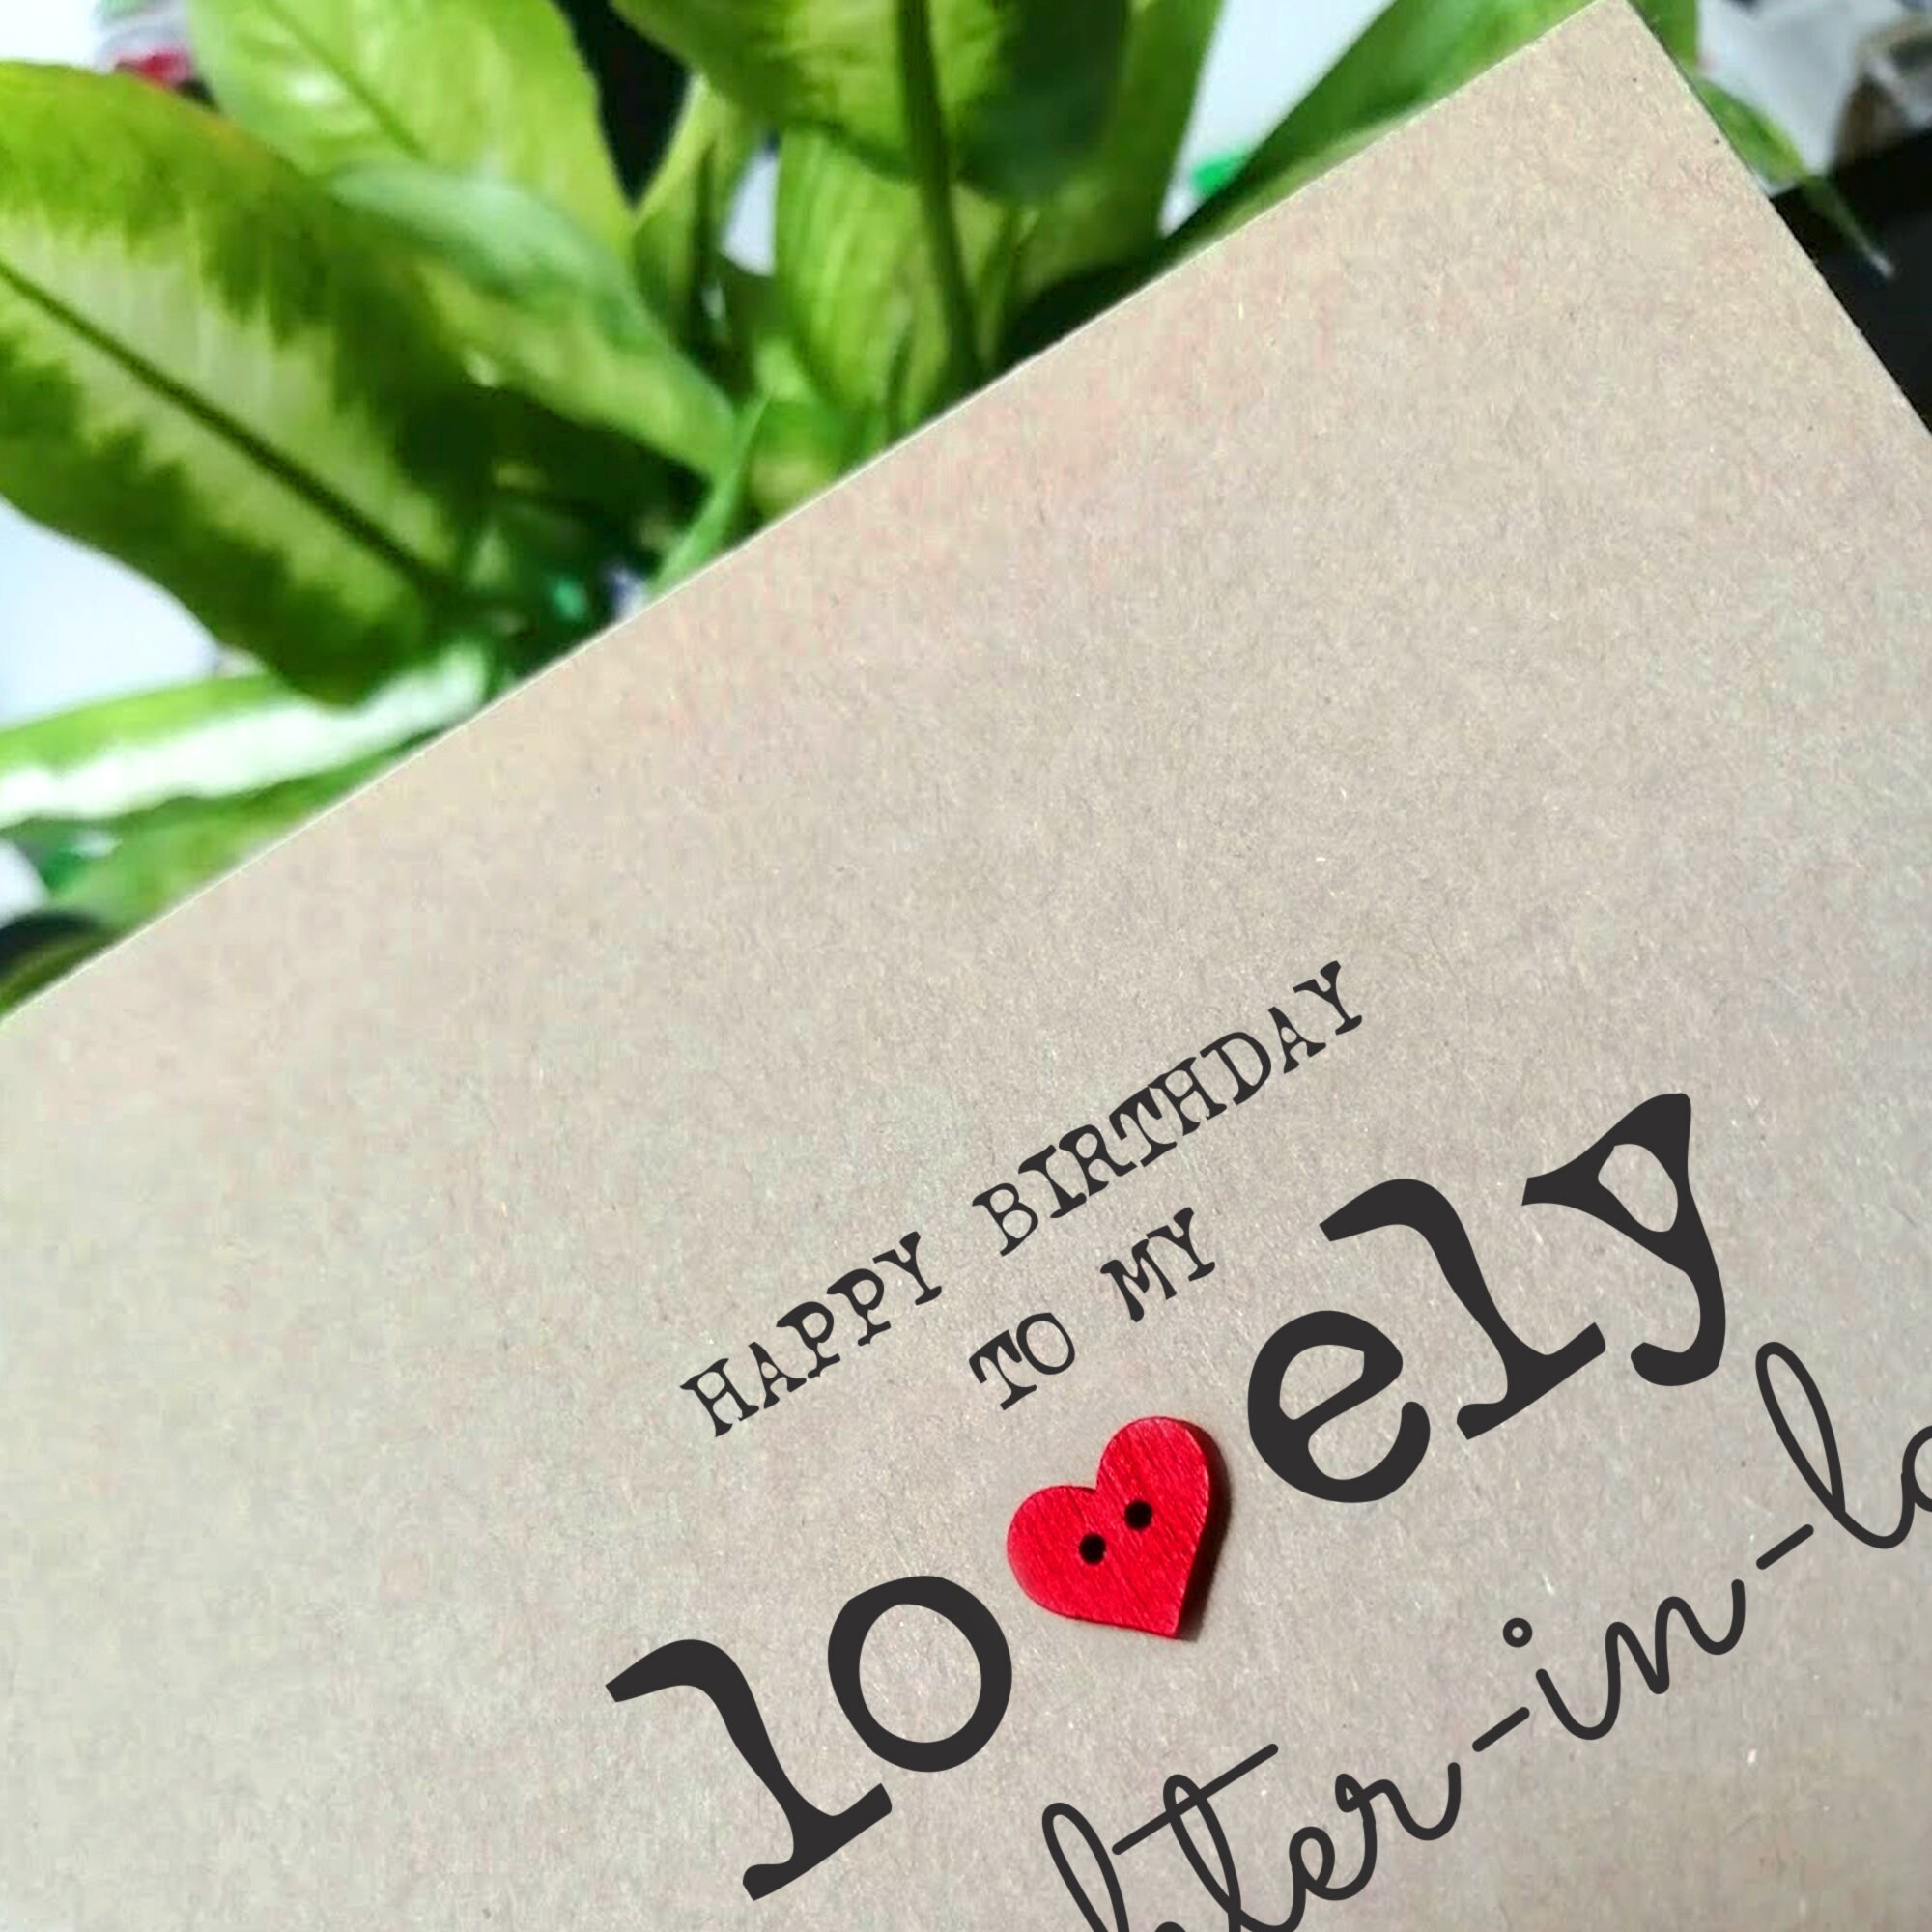 HAPPY BIRTHDAY
TO MY
lo❤ely
hter-in-la